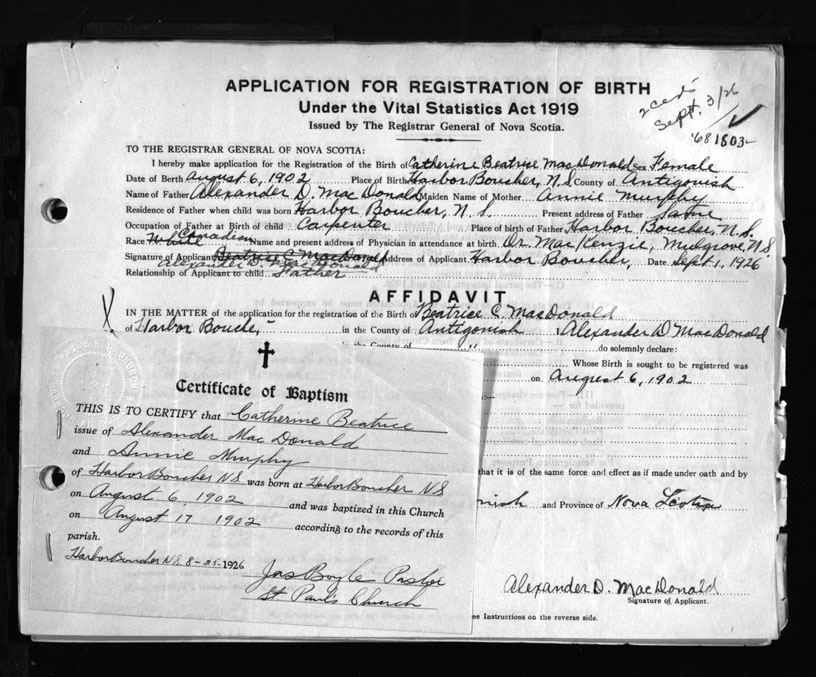 APPLICATION FOR REGISTRATION OF BIRTH
Under the Vital Statistics Act 1919
Issued by The Registrar General of Nova Scotia.
2 certs
Sept. 3/26
'681803
TO THE REGISTRAR GENERAL OF NOVA SCOTIA:
I hereby make application for the Registration of the Birth of Catherine Beatrice MacDonald Sex Female
Date of Berth August 6, 1902 Place of Birth Harbor Boucher, N.S. County of Antigonish
Name of Father Alexander D. MacDonald Maiden Name of Mother Annie Murphy
Residence of Father when child was born Harbor Boucher, N.S. Present address of Father Same
Occupation of Father at Birth of child Carpenter Place of birth of Father Harbor Boucher, N.S.
Race White Canadian Name and present address of Physician in attendance at birth Dr. MacKenzie, Mulgrove, N.S.
Signature of Applicant Beatrice C MacDonald Address of Applicant Harbor Boucher, Date Sept. 1, 1926
Alexander D. MacDonald
Relationship of Applicant to child Father
AFFIDAVIT
IN THE MATTER of the application for the registration of the Birth of Beatrice C. MacDonald
of Harbor Bouche, in the County of Antigonish I Alexander D MacDonald
in the County of " do solemnly declare:
Whose Birth is sought to be registered was
on August 6, 1902
that it is of the same force and effect as if made under oath and by
nish and Province of Nova Scotia
Alexander D. MacDonald
Signature of Applicant.
ee Instructions on the reverse side.
Certificate of Baptism
THIS IS TO CERTIFY that Catherine Beatrice
issue of Alexander Mac Donald
and Annie Murphy
of Harbor Boucher NS was born at Harbor Boucher NS
on August 6 1902 and was baptized in this Church
on August 17 1902 according to the records of this
parish.
Harbor Boucher N.S. 8-25-1926
Jas Boyle Pastor
St Pauls Church